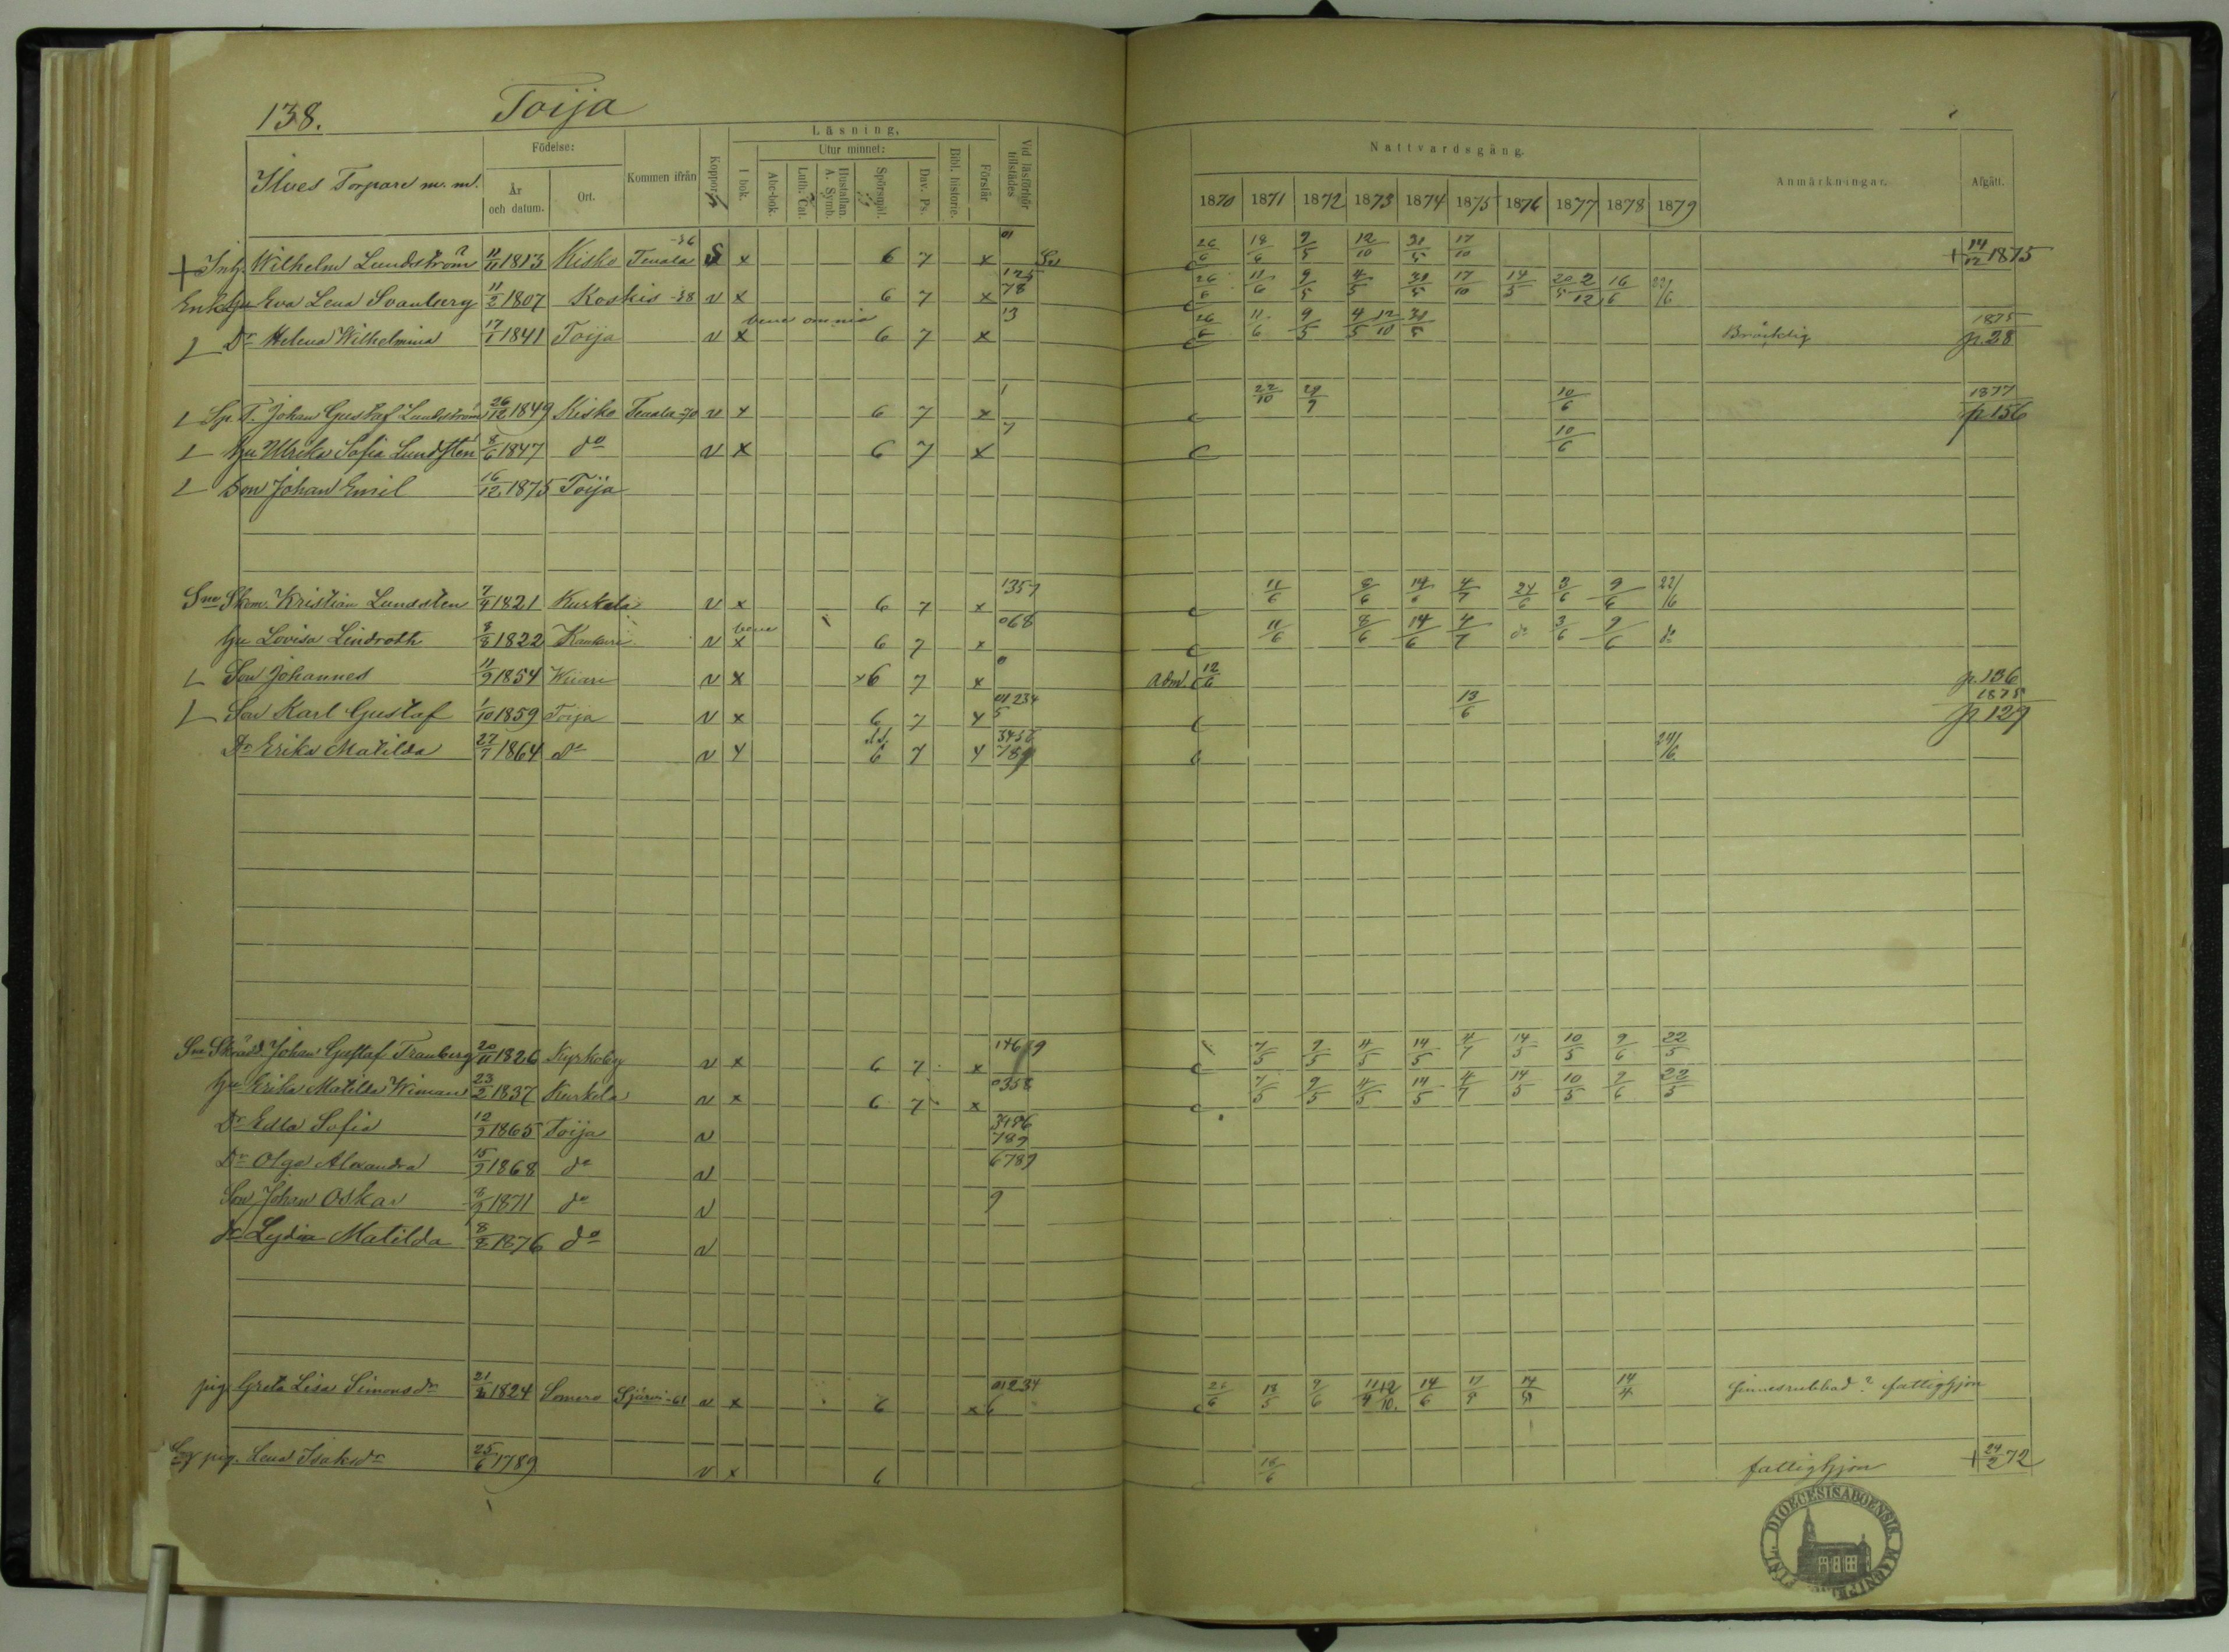 138. Toija
Läsning,
Födelse:
Utur minnet:
Ilves Torpare m. m.
År och datum.
Ort.
Kommen ifrån
Koppor
I bok.
Abc-bok.
Luth. Cat.
Hustaflan. A. Symb.
Spörsmål.
Dav. Ps.
Bibl. historie.
Förstår
Vid läsförhör tillstädes
Nattvardsgång.
1870 1871 1872 1873 1874 1875 1876 1877 1878 1879
Anmärkningar.
Afgått.
+ Inh. Wilhelm Lundström 11/11 1813 Kisko Tenala -36 x 6 7 x 01 26/6 18/6 9/5 12/10 31/5 17/10 + 14/12 1875
Enk. Hu Eva Lena Svanberg 11/2 1807 Koskis -38 v x 6 7 x 26/6 11/6 9/5 4/5 31/5 17/10 14/5 20/5 2/12 16/6 22/6
Dr Helena Wilhelmina 17/7 1841 Toija v x bene omnia 6 7 x 13 26/6 11/6 9/5 4/5 12/10 31/5 Bräcklig 1875 p. 28
Sp. T. Johan Gustaf Lundström 26/12 1849 Kisko Tenala -70 v x 6 7 x 1 22/10 29/9 10/6 1877 p. 156
Hu Ulrika Sofia Lundsten 8/6 1847 do v x 6 7 x 7 10/6
Son Johan Emil 16/12 1875 Toija
Skom. Kristian Lundsten 7/9 1821 Kurkela v x 6 7 x 1357 11/6 8/6 14/6 4/7 24/6 3/6 9/6 22/6
hu Lovisa Lindroth 8/8 1822 v x bene 6 7 x 068 11/6 8/6 14/6 4/7 do 3/6 9/6 do
Son Johannes 11/9 1854 Wiiari v x x6 7 x 0 Adm. 12/6 p. 136
Son Karl Gustaf 1/10 1859 Toija v x 6 7 x 01234 5 13/6 1875 p 129
Dr Erika Matilda 22/7 1864 do v x 6 7 x 3456 789 24/6
Skrädd. Johan Gustaf Tranberg 20/11 1826 Kyrkoby v x 6 7 x 7/5 9/5 4/5 14/5 4/7 14/5 10/5 9/6 22/5
hu Erika Matilda Wiman 23/2 1837 Kurkela v x 6 7 x 0358 7/5 9/5 4/5 14/5 4/7 14/5 10/5 9/6 22/5
Dr Edla Sofia 12/9 1865 Toija v 789
Dr Olga Alexandra 15/9 1868 do v 6789
Son Johan Oskar 8/9 1871 do v 9
Dr Lydia Matilda 8/8 1876 do v
pig. Greta Lisa Simonsdr 1824 Somero Sjärvi -61 v x 6 x 01234 6 26/6 18/5 9/6 14/6 14/4 fattighjon
pig. Lena Isaksdr 25/6 1789 v x 6 16/6 fattighjon + 24/2 72
DIOECESIS ABOENSIS